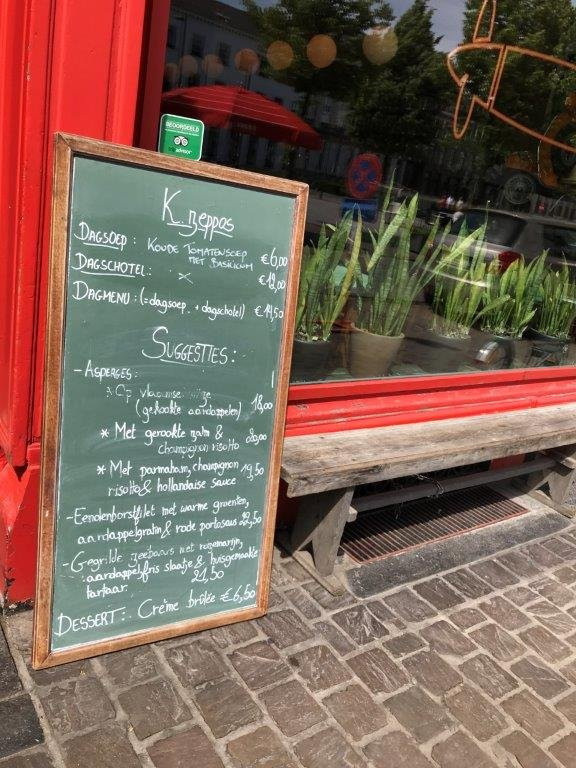 BEOORDEELD
K.zeppos
DAGSOEP : KOUDE TOMATENSOEP
MET BASILICUM €6,00
DAGSCHOTEL : x
DAGMENU : (=dagsoep + dagschotel)
SUGGESTIES :
- ASPERGES :
* Op vlaamse wijze
(gekookte aardappelen) 18,00
* Met gerookte zalm &
champignon risotto 20,00
* Met parmaham, champignon
risotto & hollandaise sauce 19,50
- Eendenborstfilet met warme groenten,
aardappelgratin & rode portosaus 22,50
- Gegrilde zeebaars met rozemarijn,
aardappel, fris slaatje & huisgemaakte
tartaar. 21,50
DESSERT : Crème brûlée €6,50